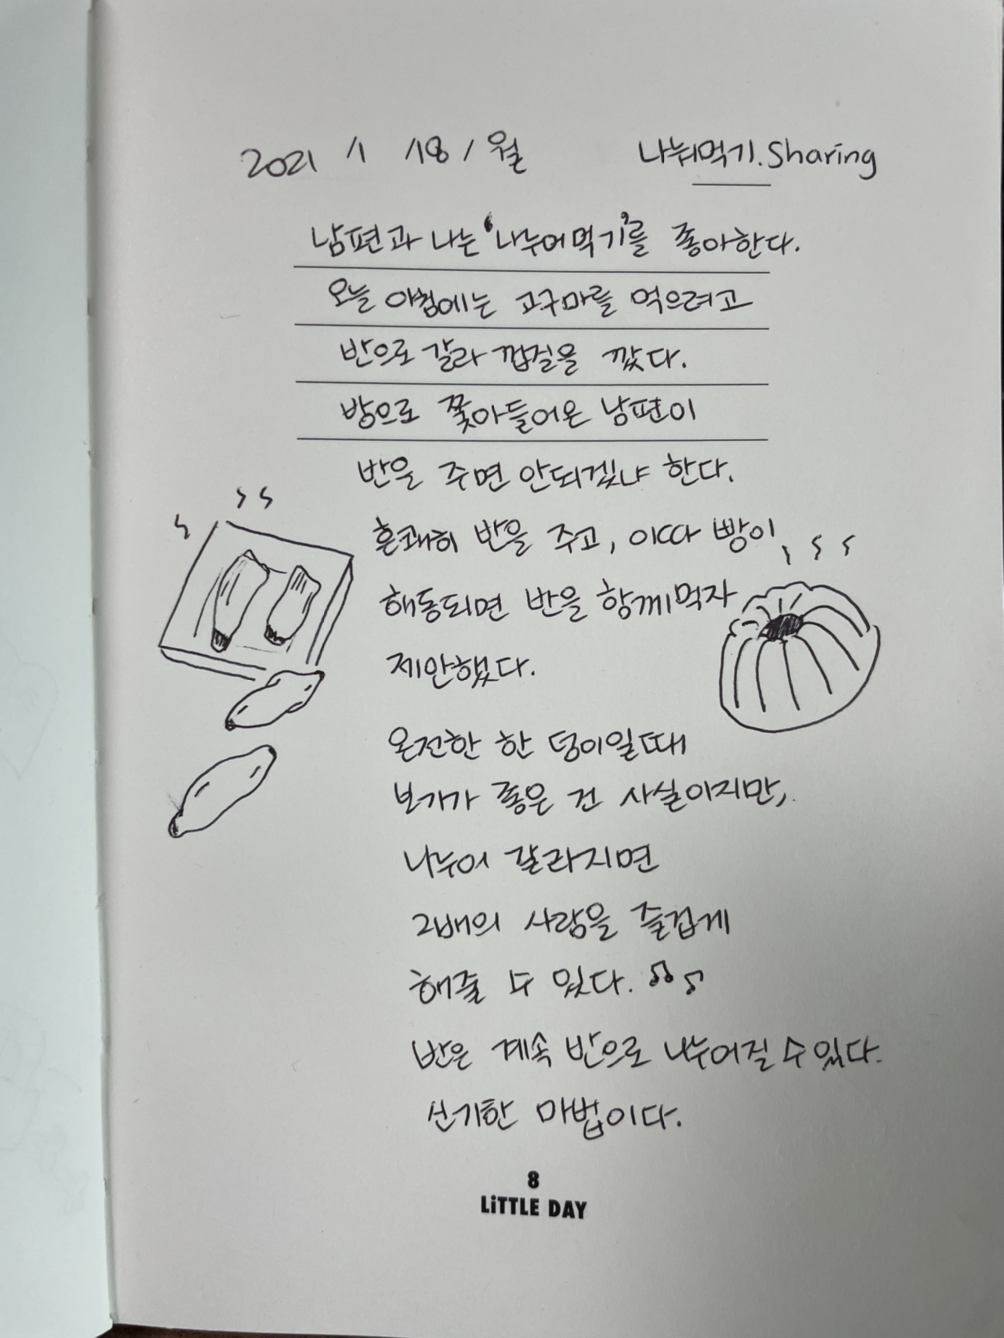 2021 /1 /18 / 월 나눠먹기. Sharing
남편과 나는 '나누어 먹기'를 좋아한다.
오늘 아침에는 고구마를 먹으려고
반으로 갈라 껍질을 깠다.
방으로 쫓아들어온 남편이
반을 주면 안되겠냐 한다.
흔쾌히 반을 주고, 이따 빵이
해동되면 반을 함께먹자
제안했다.
온전한 한 덩이일때
보기가 좋은 건 사실이지만,
나누어 갈라지면
2배의 사람을 즐겁게
해줄 수 있다. ♫♪
반은 계속 반으로 나누어질 수 있다.
신기한 마법이다.
8
LiTTLE DAY